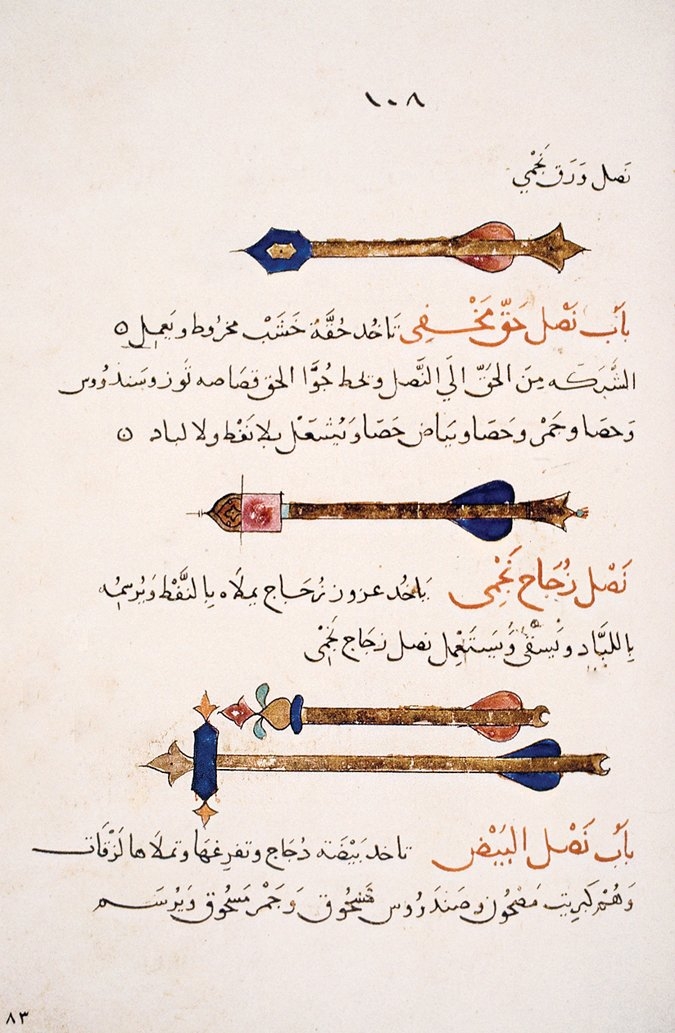 ١٠٨
نَصل وَرَق نَجْمي
بَاب نَصْل حَقّ مَخْـفِى تَاخُد حُقَّة خَشَبْ مخروط وتَعمل ٥
الشَّبَرَكَه مِنَ الحَقّ الَي النَّصل وتحط جُوَّا الحق قصَاصه تَوز وسَندرُوس
وَحصَا وجَمْر وحَصَا وبيَاض حَصَا وَتُشعَل بلا نَفْط ولا لباد ٥
نَصْل زُجَاج نَجْمِي يَاخُد عزوز زجَاج يملَاه بِالنَّفْط وَيُرسمُه
بِاللبَّاد ويَسقَى وَيَستَعْمِل نصل زجَاج نَجْمي
بَاب نَصْل البَيْض تاخد بَيْضَه دُجَاج وتفرغهَا وتملَاها لَزْقَات
وَهُمْ كبريت مَصْحُون وصَندَرُوس مَسْحُوق وَجَمْر مَسْحُوق وَيُرسَم
٨٣